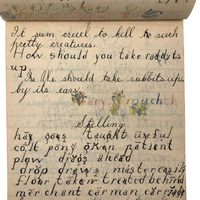 It sum cruel to kill such
pretty creatures.
How should you take rabbits
up.
We should take rabbits up
by its ears.
Spelling
hay goes taught useful
colt pony given patient
plow drops ahead
drop draws master
floor taken treated behind
merchant corman